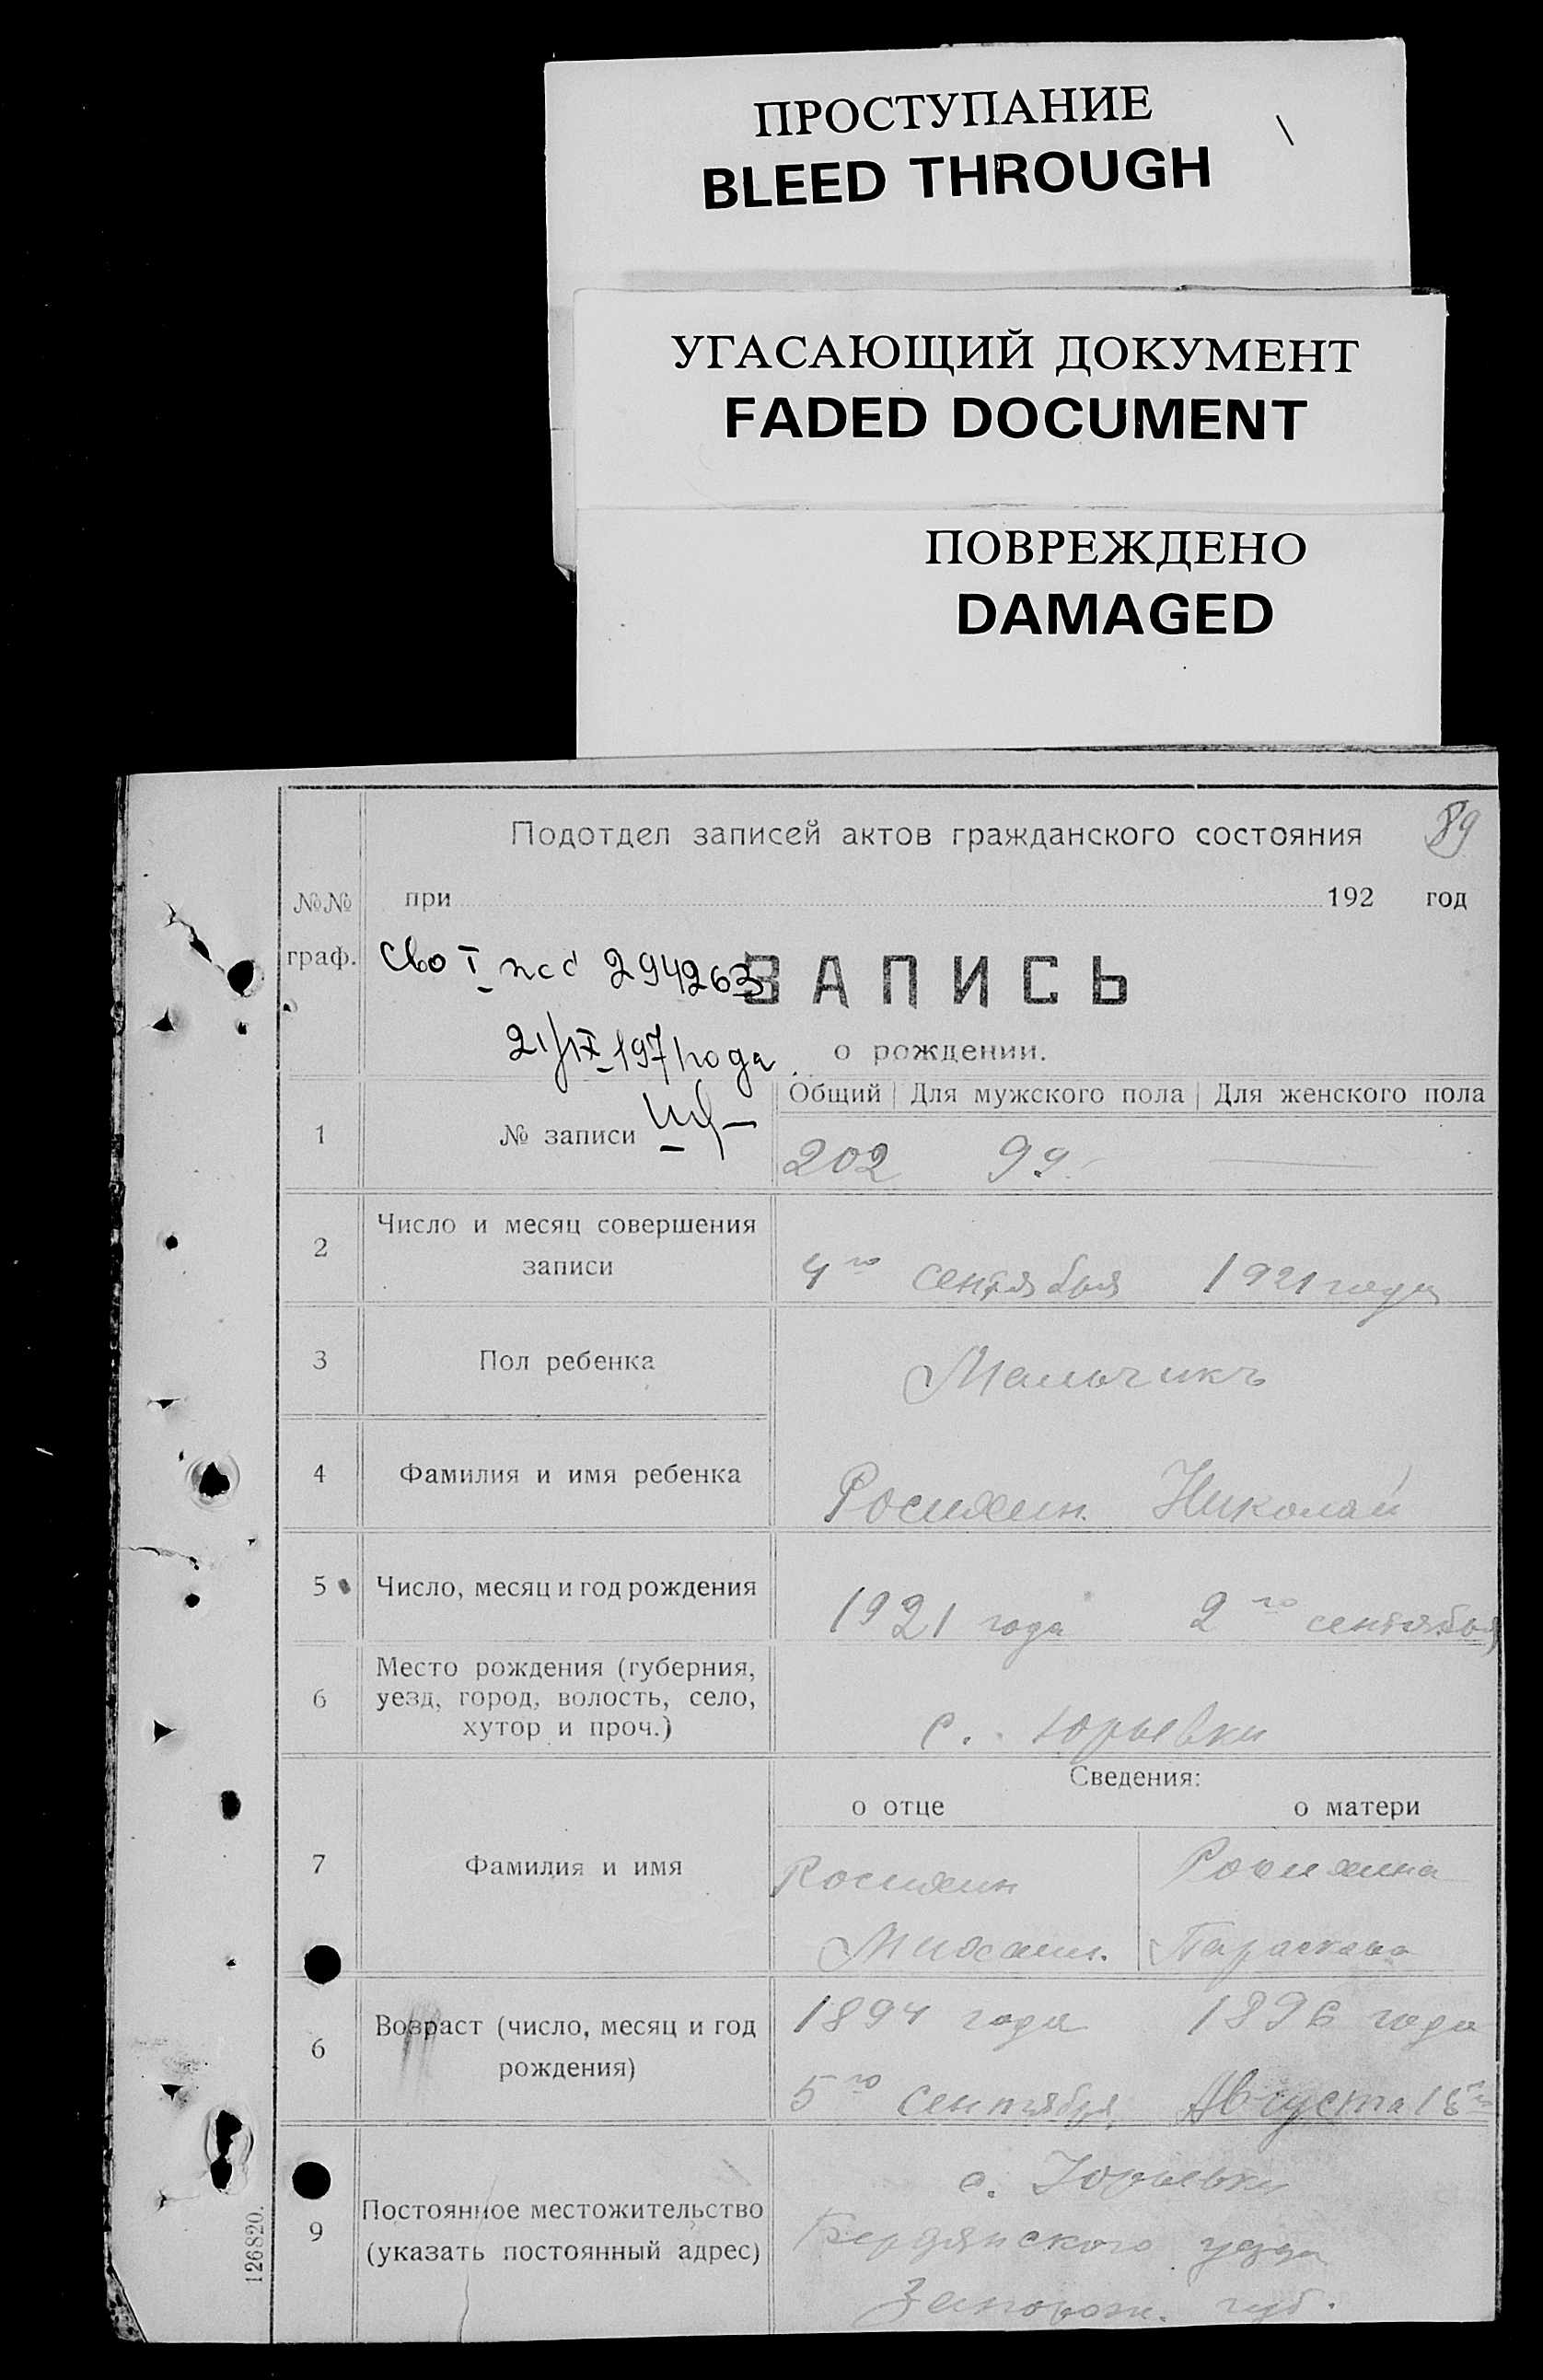 ПРОСТУПАНИЕ
BLEED THROUGH
УГАСАЮЩИЙ ДОКУМЕНТ
FADED DOCUMENT
ПОВРЕЖДЕНО
DAMAGED
89
Подотдел записей актов гражданского состояния
№№ при 192 год
граф.
294263
ЗАПИСЬ
21/IX-1971 года
о рождении.
Общий Для мужского пола Для женского пола
1 № записи 202 99 —
2 Число и месяц совершения
записи
4го сентября 1921 года
3 Пол ребенка Мальчикъ
4 Фамилия и имя ребенка Росихин Николай
5 Число, месяц и год рождения 1921 года 2го сентября
6 Место рождения (губерния,
уезд, город, волость, село,
хутор и проч.)
с. Юрьевки
Сведения:
о отце о матери
7 Фамилия и имя
Росихин Росихина
Михаил. Параскева
6 Возраст (число, месяц и год
рождения)
1894 года 1896 года
5го сентября Августа
9 Постоянное местожительство
(указать постоянный адрес)
с. Юрьевки
Бердянского уезда
Запорож. губ.
126820.